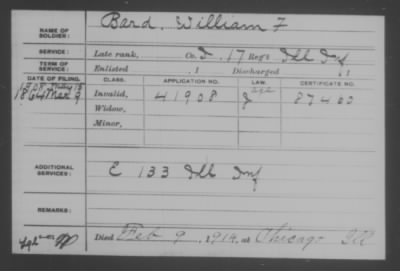 NAME OF SOLDIER: Bard, William F
SERVICE: Late rank, Co. D. 17 Reg't Ill Inf
TERM OF SERVICE: Enlisted , 1 Discharged , 1
DATE OF FILING. CLASS. APPLICATION NO. LAW. CERTIFICATE NO.
1864 Mar 9 Invalid, 41908 87460
Widow,
Minor,
ADDITIONAL SERVICES: E 133 Ill Inf
REMARKS:
Died Feb 9, 1914, at Chicago Ill